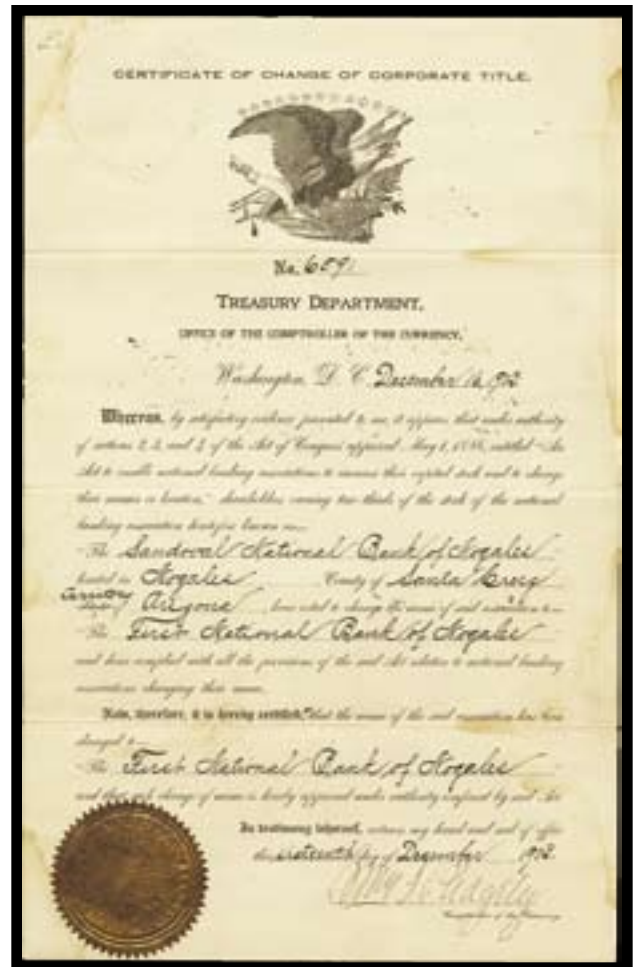 CERTIFICATE OF CHANGE OF CORPORATE TITLE.
No. 6091
TREASURY DEPARTMENT,
OFFICE OF THE COMPTROLLER OF THE CURRENCY,
Washington, D. C. December 16, 1902
Whereas, by satisfactory evidence presented to me, it appears that under authority
of sections 2, 3, and 4 of the Act of Congress approved May 1, 1886, entitled "An
Act to enable national banking associations to increase their capital stock and to change
their names or location," shareholders owning two-thirds of the stock of the national
banking association heretofore known as—
"The Sandoval National Bank of Nogales
located in Nogales County of Santa Cruz
Arizona have voted to change the name of said association to—
"The First National Bank of Nogales
and have complied with all the provisions of the said Act relative to national banking
associations changing their name.
Now, therefore, it is hereby certified, that the name of the said association has been
changed to—
"The First National Bank of Nogales
and that such change of name is hereby approved under authority conferred by said Act
In testimony whereof, witness my hand and seal of office
this sixteenth day of December 1902.
Comptroller of the Currency